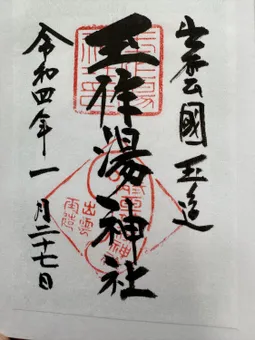 出雲國 玉造
玉作湯神社
令和四年一月二十七日